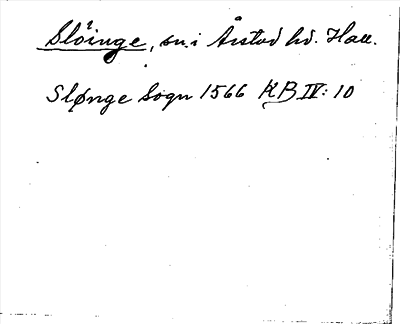 Slöinge, sn. i Årstad hd. Hall.
Slønge Sogn 1566 KB IV: 10